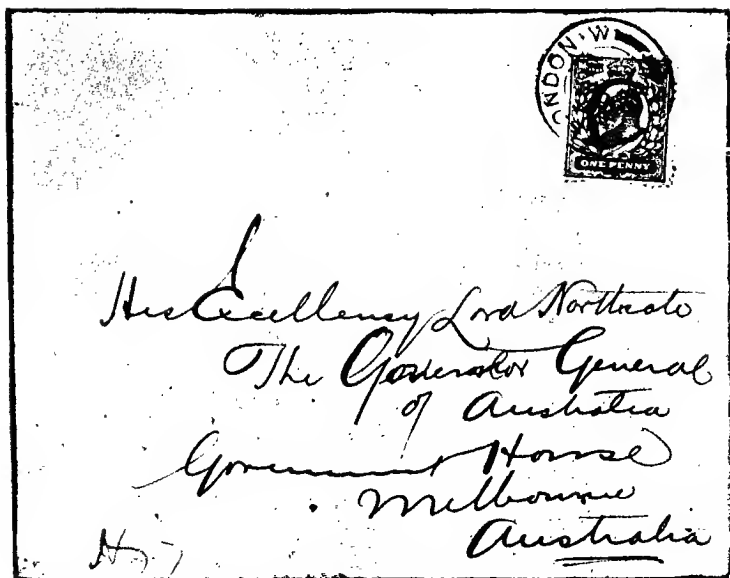 LONDON·W
ONE PENNY
His Excellency Lord Northcote
The Governor General
of Australia
Government House
Melbourne
Australia